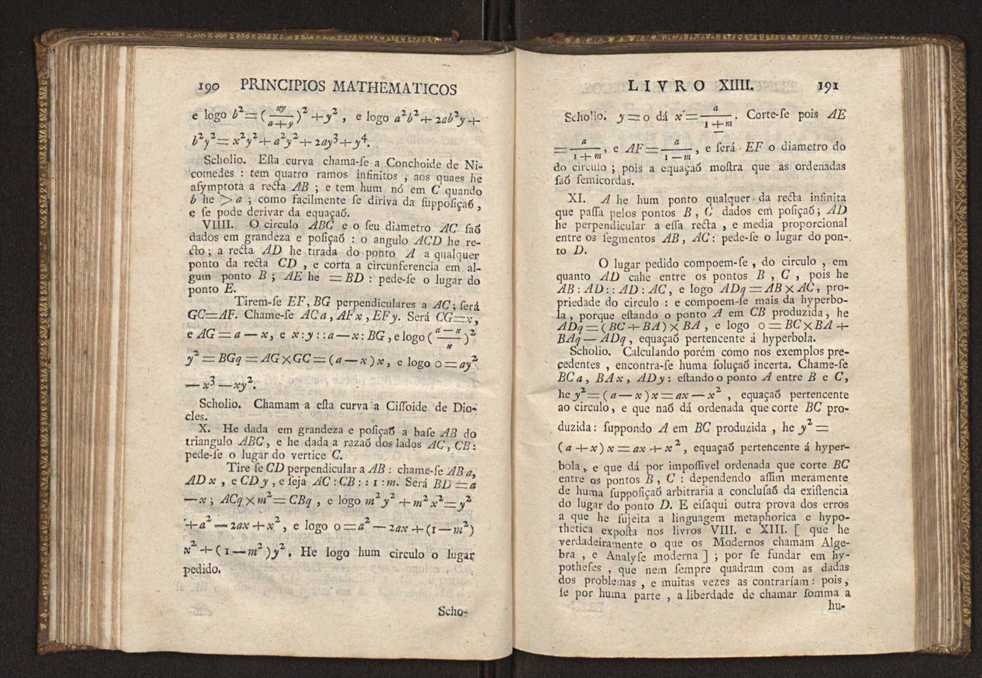 190 PRINCIPIOS MATHEMATICOS
e logo b²=(ay/(a+y))²+y², e logo a²b²+2ab²y+
b²y²=x²y²+a²y²+2ay³+y⁴.
Scholio. Eſta curva chama-ſe a Conchoide de Ni-
comedes : tem quatro ramos infinitos , aos quaes he
aſymptota a recta AB ; e tem hum nó em C quando
b he > a ; como facilmente ſe diriva da ſuppoſiçaõ ,
e ſe pode derivar da equaçaõ.
VIIII. O circulo ABC e o ſeu diametro AC ſaõ
dados em grandeza e poſiçaõ : o angulo ACD he re-
cto; a recta AD he tirada do ponto A a qualquer
ponto da recta CD , e corta a circunferencia em al-
gum ponto B ; AE he =BD : pede-ſe o lugar do
ponto E.
Tirem-ſe EF, BG perpendiculares a AC; ſerá
GC=AF. Chame-ſe ACa, AFx, EFy. Será CG=x,
e AG=a—x, e x:y::a—x:BG, e logo ((a—x)/x)²
y²=BGq=AG×GC=(a—x)x, e logo 0=ay²
—x³—xy².
Scholio. Chamam a eſta curva a Ciſſoide de Dio-
cles.
X. He dada em grandeza e poſiçaõ a baſe AB do
triangulo ABC, e he dada a razaõ dos lados AC, CB:
pede-ſe o lugar do vertice C.
Tire ſe CD perpendicular a AB : chame-ſe ABa,
ADx , e CDy, e ſeja AC:CB::1:m. Será BD=a
—x; ACq×m²=CBq , e logo m²y²+m²x²=y²
+a²—2ax+x², e logo 0=a²—2ax+(1—m²)
x²+(1—m²)y². He logo hum circulo o lugar
pedido.
Scho-
LIVRO XIIII. 191
Scholio. y=0 dá x=a/(1+m). Corte-ſe pois AE
=a/(1+m), e AF=a/(1—m), e ſerá EF o diametro do
do circulo ; pois a equaçaõ moſtra que as ordenadas
ſaõ ſemicordas.
XI. A he hum ponto qualquer da recta infinita
que paſſa pelos pontos B, C dados em poſiçaõ; AD
he perpendicular a eſſa recta , e media proporcional
entre os ſegmentos AB, AC: pede-ſe o lugar do pon-
to D.
O lugar pedido compoem-ſe , do circulo , em
quanto AD cahe entre os pontos B , C , pois he
AB:AD::AD:AC, e logo ADq=AB×AC, pro-
priedade do circulo : e compoem-ſe mais da hyperbo-
la, porque eſtando o ponto A em CB produzida, he
ADq=(BC+BA)×BA , e logo 0=BC×BA+
BAq—ADq , equaçaõ pertencente á hyperbola.
Scholio. Calculando porém como nos exemplos pre-
cedentes , encontra-ſe huma ſoluçaõ incerta. Chame-ſe
BCa, BAx, ADy: eſtando o ponto A entre B e C,
he y²=(a—x)x=ax—x² , equaçaõ pertencente
ao circulo, e que naõ dá ordenada que corte BC pro-
duzida: ſuppondo A em BC produzida , he y²=
(a+x)x=ax+x², equaçaõ pertencente á hyper-
bola , e que dá por impoſſivel ordenada que corte BC
entre os pontos B, C : dependendo aſſim meramente
de huma ſuppoſiçaõ arbitraria a concluſaõ da exiſtencia
do lugar do ponto D. E eiſaqui outra prova dos erros
a que he ſujeita a linguagem metaphorica e hypo-
thetica expoſta nos livros VIII. e XIII. [ que he
verdadeiramente o que os Modernos chamam Alge-
bra , e Analyſe moderna ] ; por ſe fundar em hy-
potheſes , que nem ſempre quadram com as dadas
dos problemas , e muitas vezes as contrariam : pois,
ſe por huma parte , a liberdade de chamar ſomma a
hu-